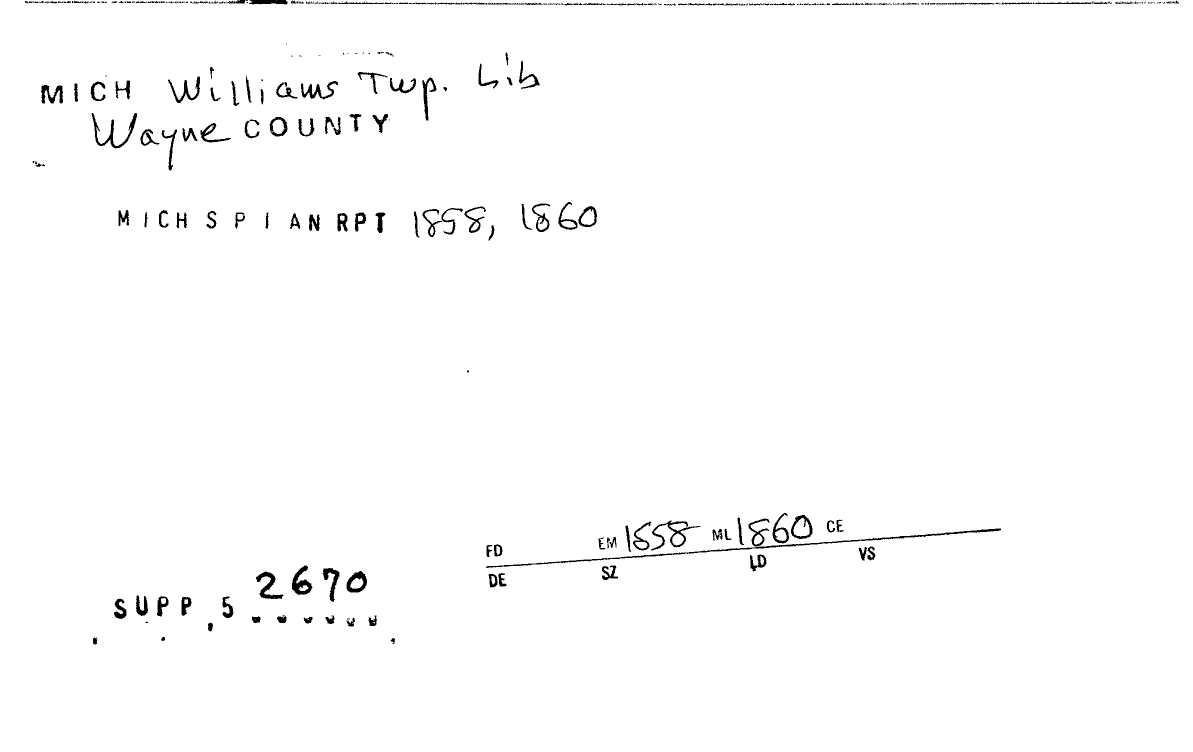 MICH Williams Twp. Lib
Wayne COUNTY
MICH S P I AN RPT 1858, 1860
FD EM 1858 ML 1860 CE
DE SZ LD VS
SUPP, 5 2670